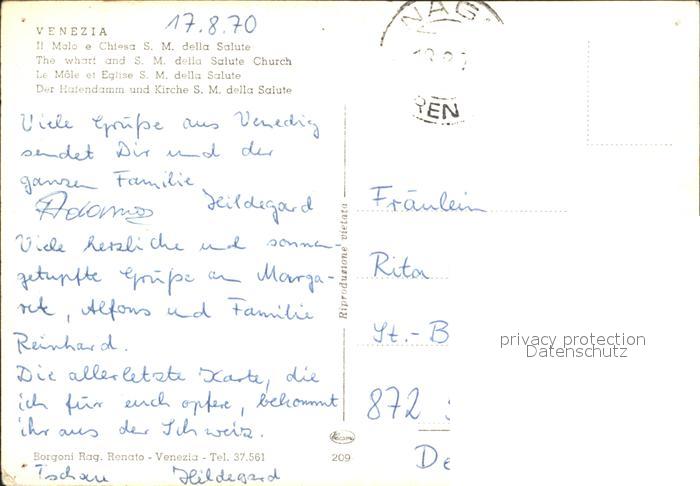 17.8.70
VENEZIA
Il Molo e Chiesa S. M. della Salute
The wharf and S. M. della Salute Church
Le Môle et Eglise S. M. della Salute
Der Hafendamm und Kirche S. M. della Salute
Viele Grüße aus Venedig
sendet Dir und der
ganzen Familie
Hildegard
Viele herzliche und sonnen-
getupfte Grüße an Marga-
ret, Alfons und Familie
Reinhard.
Die allerletzte Karte, die
ich für euch opfere, bekommt
ihr aus der Schweiz.
Borgoni Rag. Renato - Venezia - Tel. 37.561
209
Tschau Hildegard
Riproduzione vietata
NAG
REN
Fräulein
Rita
St.-B
872
De
privacy protection
Datenschutz